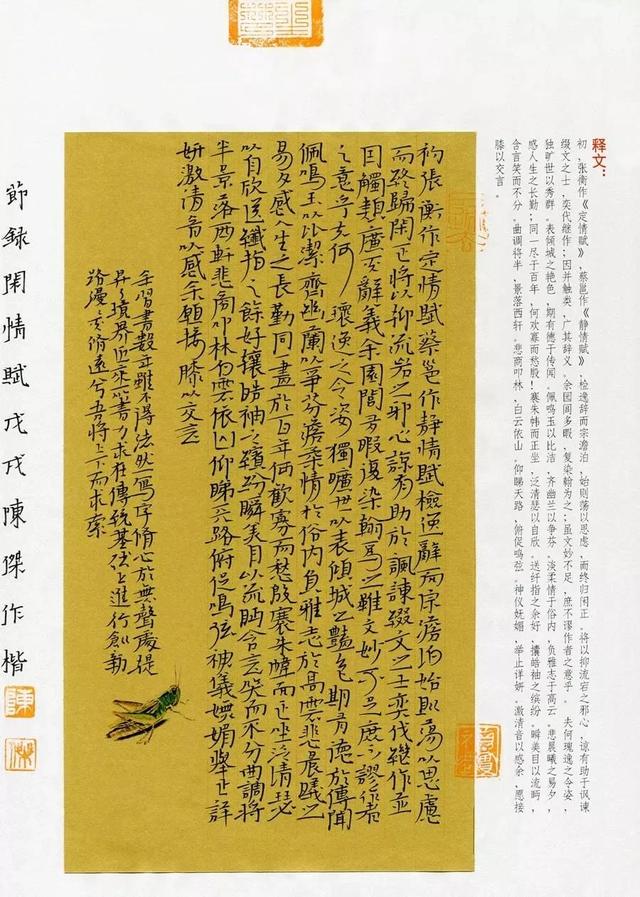 释文：
初，张衡作《定情赋》，蔡邕作《静情赋》，检逸辞而宗澹泊，始则荡以思虑，而终归闲正。将以抑流宕之邪心，谅有助于讽谏
缀文之士，奕代继作；因并触类，广其辞义。余园闾多暇，复染翰为之；虽文妙不足，庶不谬作者之意乎。 夫何瑰逸之令姿，
独旷世以秀群。表倾城之艳色，期有德于传闻。佩鸣玉以比洁，齐幽兰以争芬。淡柔情于俗内，负雅志于高云。悲晨曦之易夕，
感人生之长勤；同一尽于百年，何欢寡而愁殷！褰朱帏而正坐，泛清瑟以自欣。送纤指之余好，攘皓袖之缤纷。瞬美目以流眄，
含言笑而不分。曲调将半，景落西轩。悲商叩林，白云依山。仰睇天路，俯促鸣弦。神仪妩媚，举止详妍。激清音以感余，愿接
膝以交言。
初張衡作定情賦蔡邕作静情賦檢逸辭而宗澹泊始則蕩以思慮
而終歸閑正將以抑流宕之邪心諒有助於諷諫綴文之士奕代继作並
因觸類廣其辭義余園閭多暇復染翰為之雖文妙不足庶不謬作者
之意乎夫何瓌逸之令姿獨曠世以表傾城之豔色期有德於傳聞
佩鳴玉以比潔齊幽蘭以爭芬澹柔情於俗内負雅志於高雲悲晨曦之
易夕感人生之長勤同一盡於百年何歡寡而愁殷褰朱幃而正坐泛清瑟
以自欣送纖指之餘好攘皓袖之繽紛瞬美目以流眄含言笑而不分曲調將
半景落西軒悲商叩林白雲依山仰睇天路俯促鳴弦神儀嫵媚舉止詳
妍激清音以感余願接膝以交言
余習書數雖不得法然寫字脩心於無聲處提
昇境界近來書力求在傳統基礎上進行創新
路漫漫其脩遠兮吾將上下而求索
節録閑情賦戊戌陳傑作楷
陳
傑